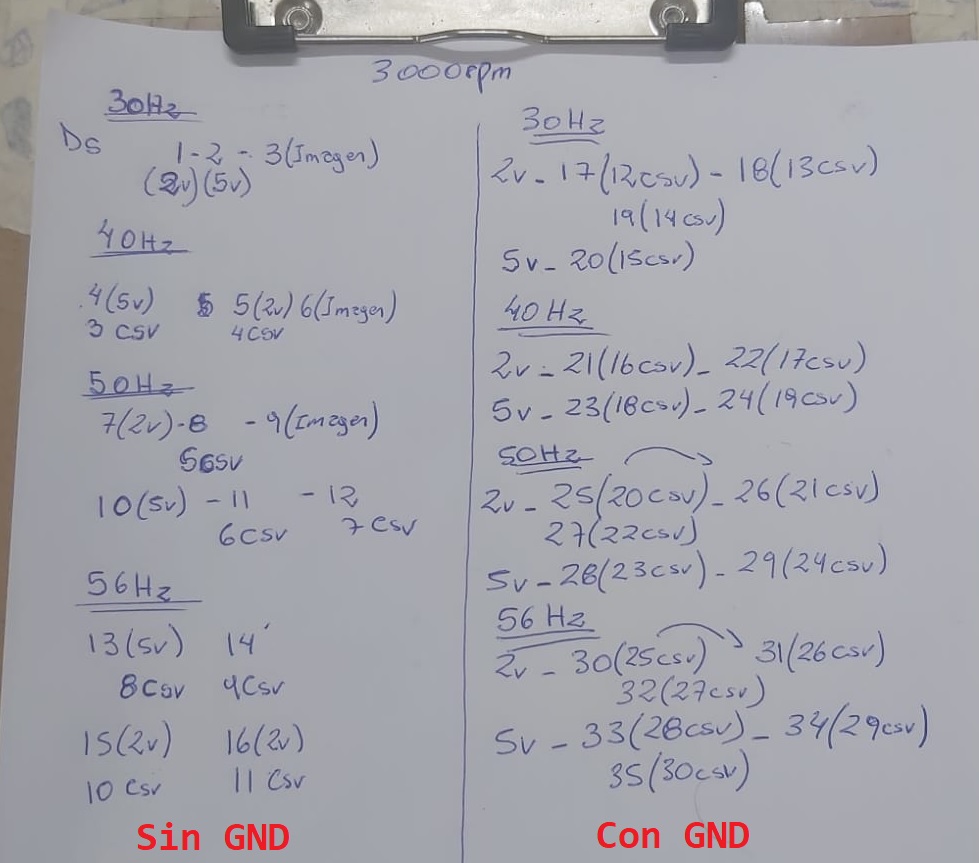 3000rpm
30Hz
DS 1-2 - 3(Imagen)
(2v)(5v)
40Hz
4(5v) 5(2v) 6(Imagen)
3 csv 4csv
50Hz
7(2v)-8 - 9(Imagen)
5csv
10(5v) - 11 - 12
6csv 7csv
56Hz
13(5v) 14
8csv 9csv
15(2v) 16(2v)
10 csv 11 csv
Sin GND
30Hz
2v - 17(12csv) - 18(13csv)
19(14csv)
5v - 20(15csv)
40Hz
2v - 21(16csv) - 22(17csv)
5v - 23(18csv) - 24(19csv)
50Hz
2v - 25(20csv) - 26(21csv)
27(22csv)
5v - 28(23csv) - 29(24csv)
56 Hz
2v - 30(25csv) 31(26csv)
32(27csv)
5v - 33(28csv) - 34(29csv)
35(30csv)
Con GND